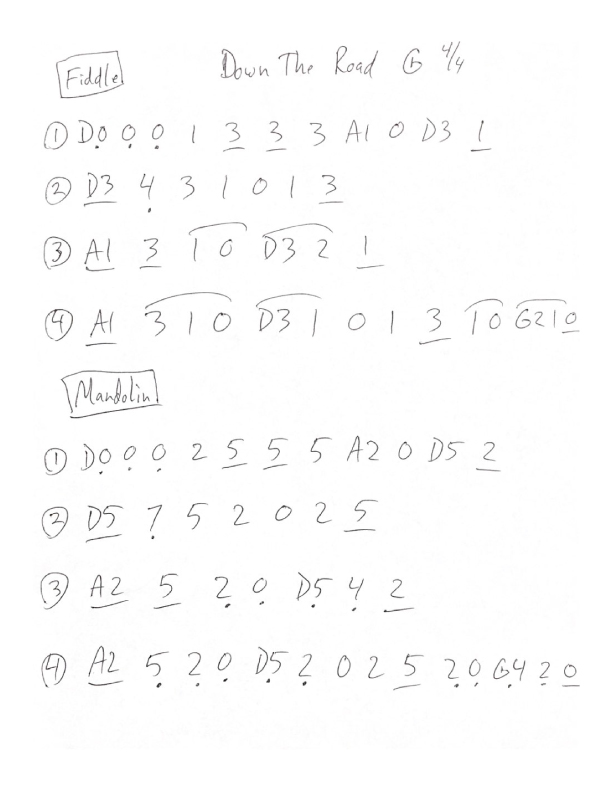 Fiddle Down The Road G 4/4
① D0 0 0 1 3 3 3 A1 0 D3 1
② D3 4 3 1 0 1 3
③ A1 3 1 0 D3 2 1
④ A1 3 1 0 D3 1 0 1 3 1 0 G2 1 0
Mandolin
① D0 0 0 2 5 5 5 A2 0 D5 2
② D5 7 5 2 0 2 5
③ A2 5 2 0 D5 4 2
④ A2 5 2 0 D5 2 0 2 5 2 0 G4 2 0